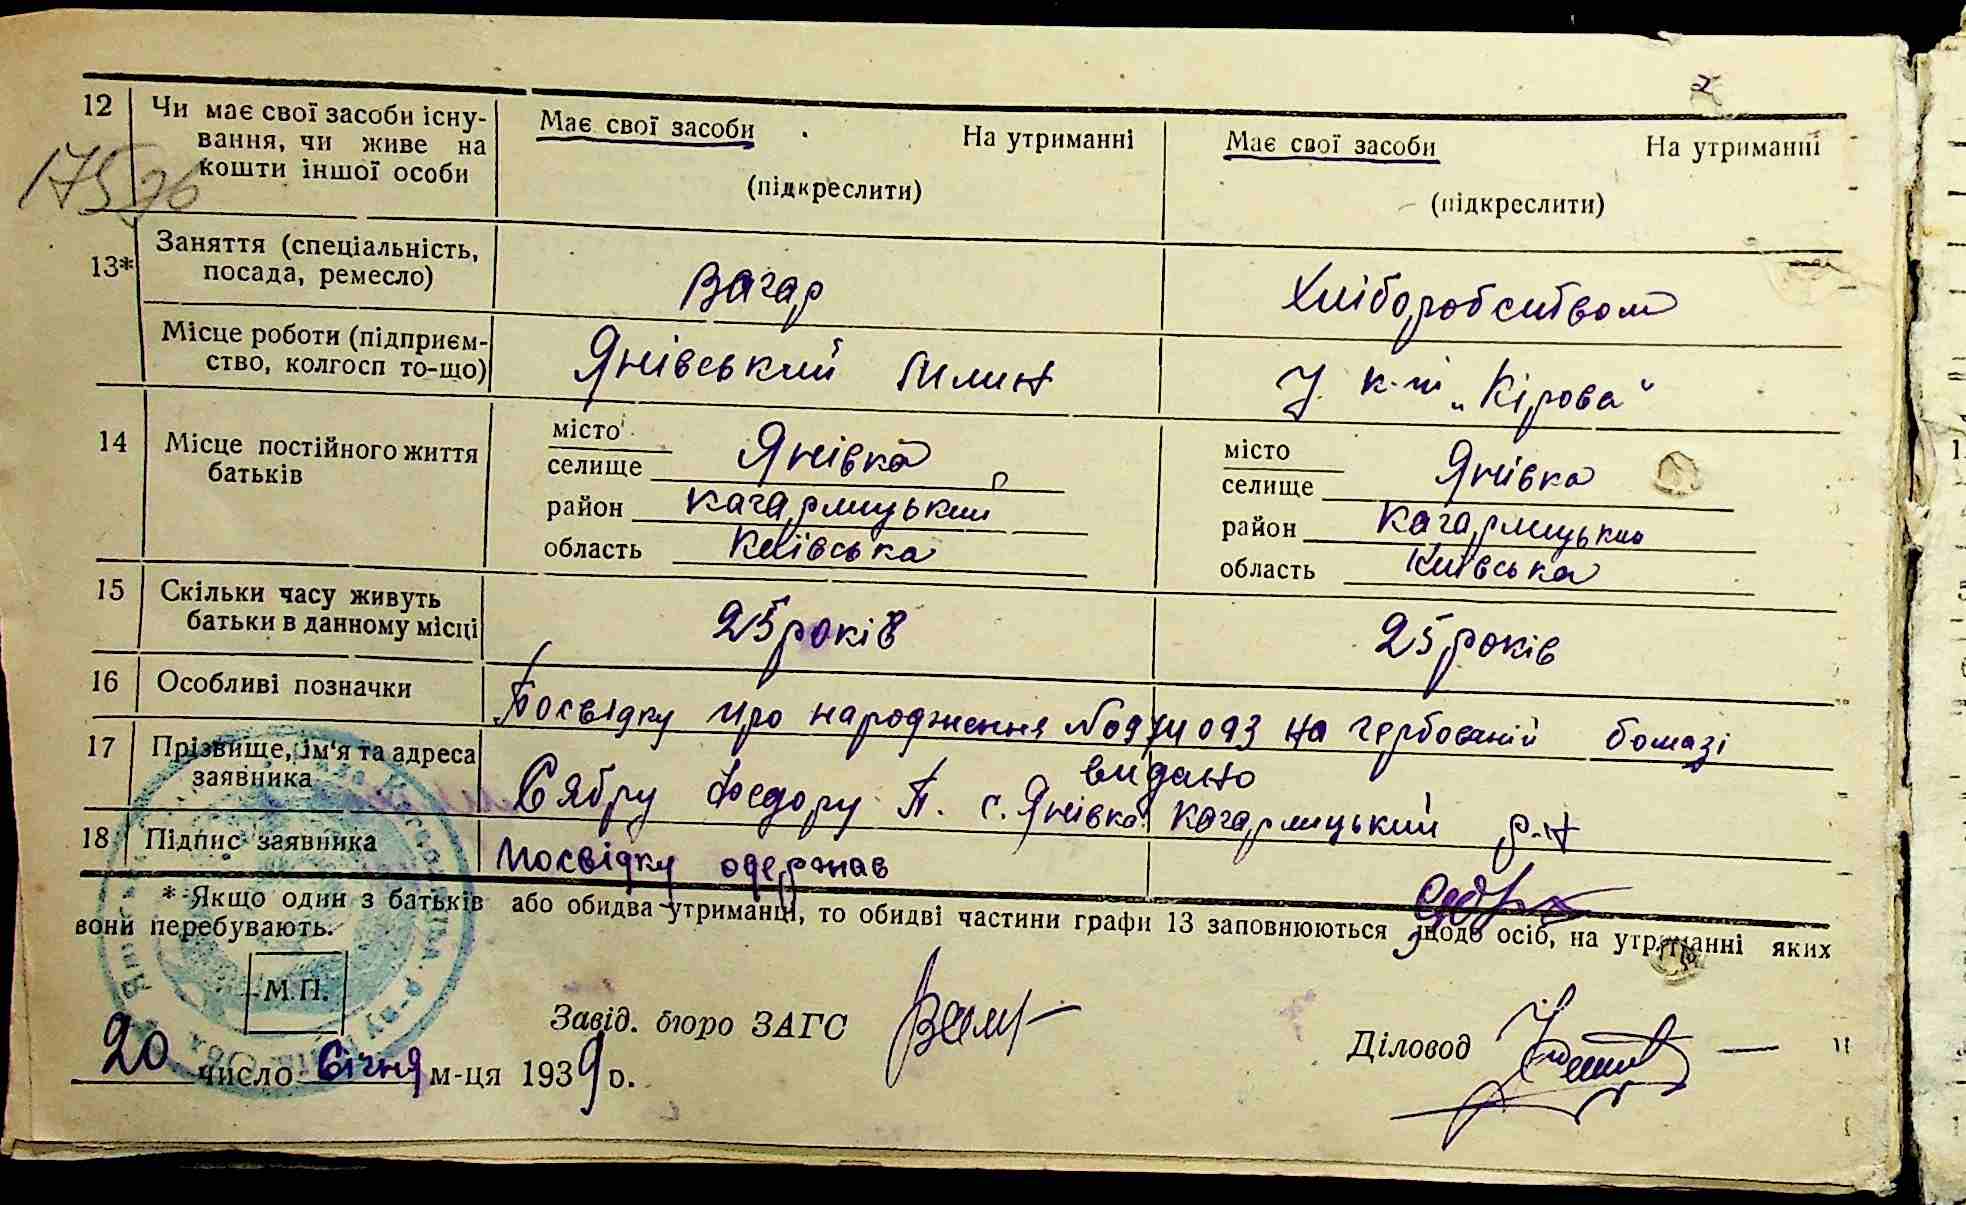 12 Чи має свої засоби існу- Має свої засоби На утриманні Має свої засоби На утриманні
вання, чи живе на
кошти іншої особи (підкреслити) (підкреслити)
Заняття (спеціальність,
13* посада, ремесло) Вагар Хліборобством
Місце роботи (підприєм- Янівський млин У к-пі „Кірова"
ство, колгосп то-що)
14 Місце постійного життя місто Янівка місто Янівка
батьків селище селище
район Кагарлицький район Кагарлицький
область Київська область Київська
15 Скільки часу живуть 25 років 25 років
батьки в данному місці
16 Особливі позначки Посвідку про народження на гербованій бомазі
17 Прізвище, ім'я та адреса видано
заявника Сябру Федору П. с. Янівка Кагарлицький р-н
18 Підпис заявника посвідку одержав
* Якщо один з батьків або обидва утриманці, то обидві частини графи 13 заповнюються щодо осіб, на утриманні яких
вони перебувають.
М.П.
Завід. бюро ЗАГС Діловод
20 число Січня м-ця 1939 р.